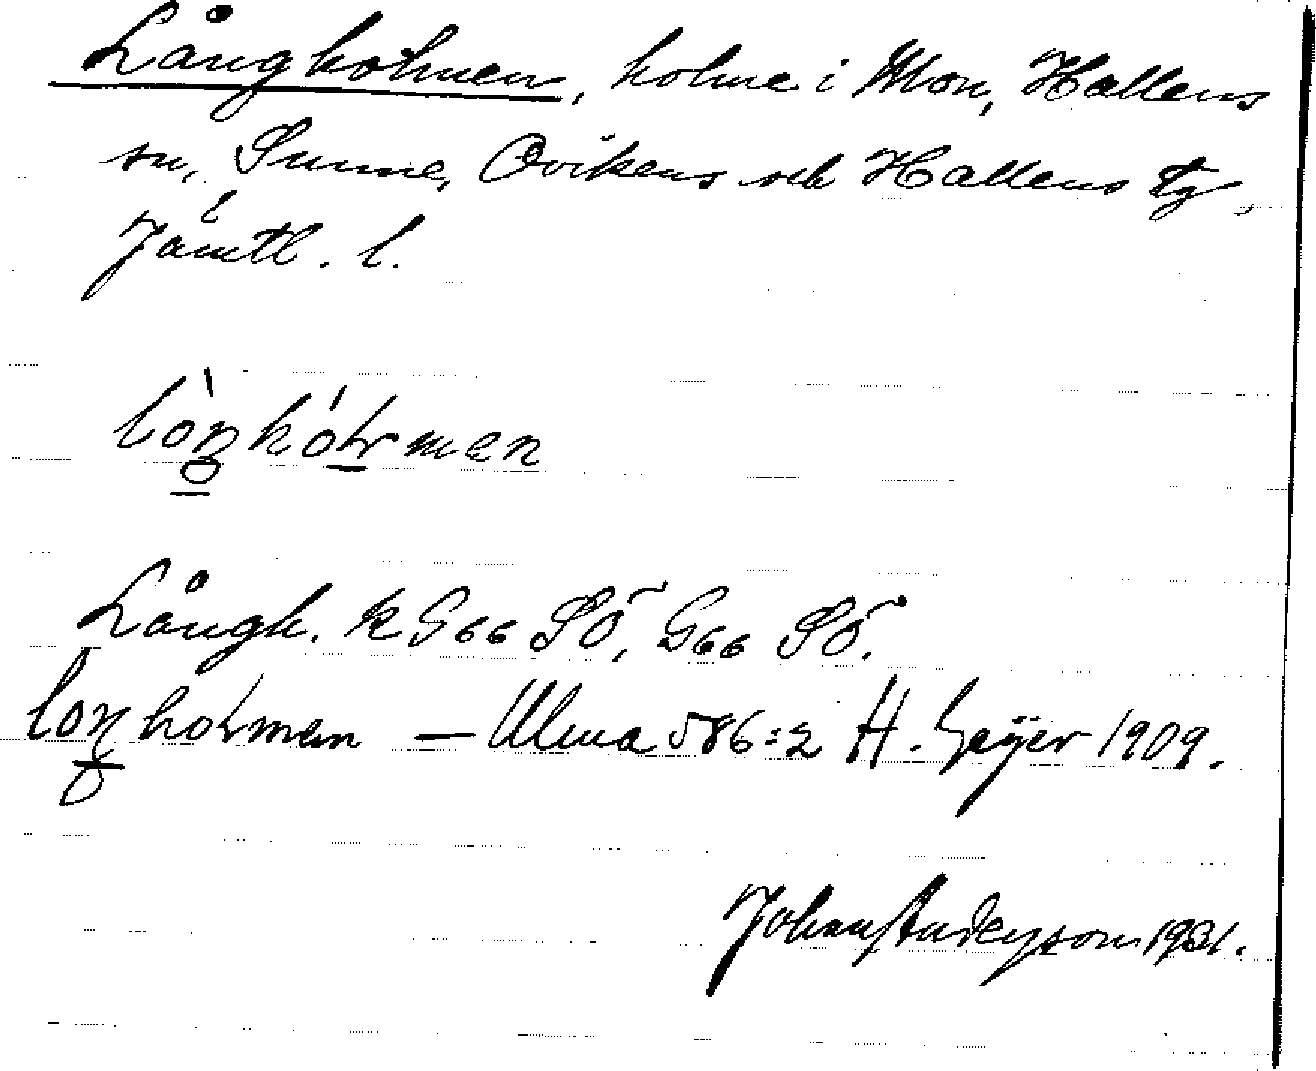 Långholmen, holme i Mon, Hallens
sn, Sunne, Ovikens och Hallens tg,
Jämtl. l.
Långh. k G66 SÖ, G66 SÖ.
— Ulma 586:2 H. Geijer 1909.
Johan Anderson 1931.